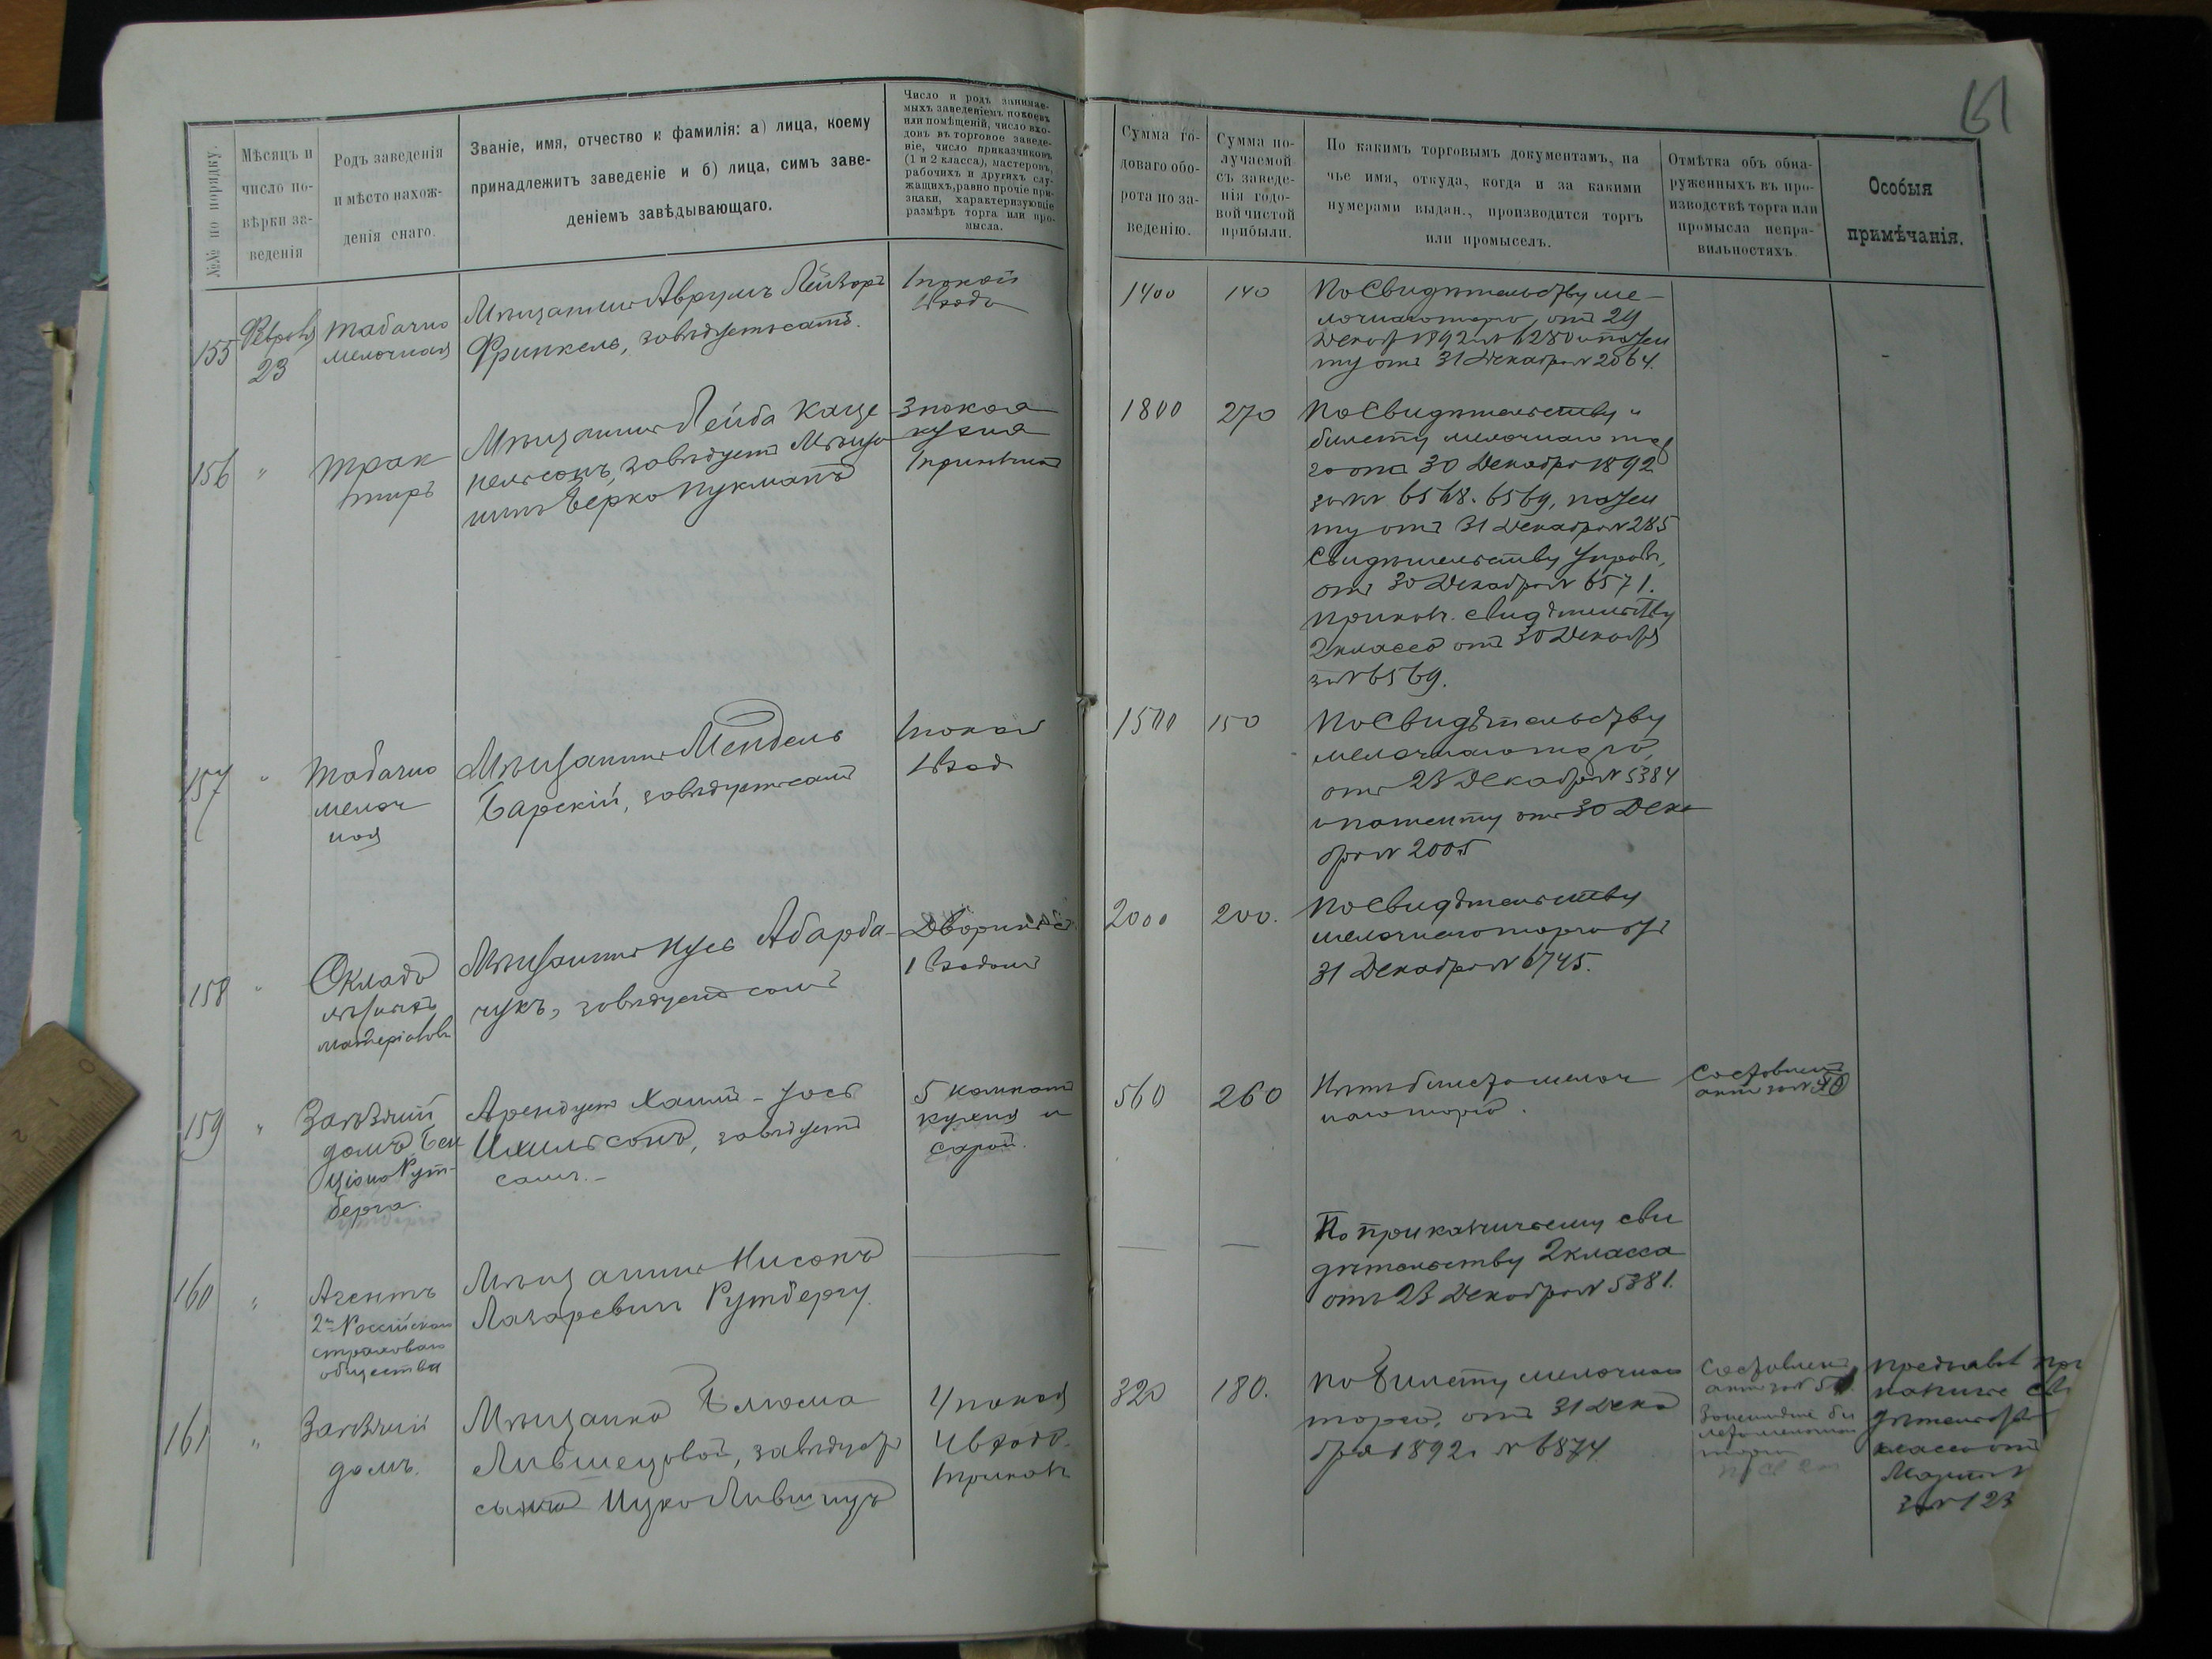 61
№№ по порядку.
Мѣсяцъ и
число по-
вѣрки за-
веденія
Родъ заведенія
и мѣсто нахож-
денія онаго.
Званіе, имя, отчество и фамилія: а) лица, коему
принадлежитъ заведеніе и б) лица, симъ заве-
деніемъ завѣдывающаго.
Число и родъ занимае-
мыхъ заведеніемъ покоевъ
или помѣщеній, число вхо-
довъ въ торговое заведе-
ніе, число приказчиковъ
(1 и 2 класса), мастеровъ,
рабочихъ и другихъ слу-
жащихъ, равно прочіе при-
знаки, характеризующіе
размѣръ торга или про-
мысла.
Сумма го-
доваго обо-
рота по за-
веденію.
Сумма по-
лучаемой
съ заведе-
нія годо-
вой чистой
прибыли.
По какимъ торговымъ документамъ, на
чье имя, откуда, когда и за какими
нумерами выдан., производится торгъ
или промыселъ.
Отмѣтка объ обна-
руженныхъ въ про-
изводствѣ торга или
промысла непра-
вильностяхъ
Особыя
примѣчанія.
155
Февраля
23
Табачно
мелочная
Мѣщанинъ Аврумъ Лейзоръ
Финкель, завѣдуетъ самъ.
1 покой
1 входъ
1400
140
По Свидѣтельству ме-
лочнаго торга, отъ 29
Декаб 1892 № 6280 и патен
ту отъ 31 Декабря № 2064.
156
"
Трак
тиръ
Мѣщанинъ Лейба Каце
нельсонъ, завѣдуетъ Мѣща
нинъ Берко Цукманъ
3 покоя
кухня
1800
270
По Свидѣтельству и
билету мелочнаго тор
га отъ 30 Декабря 1892
за № 6568. 6569, патен
ту отъ 31 Декабря № 285
Свидѣтельству Управ.
отъ 30 Декабря № 6571.
приказ. свидѣтельству
2 класса отъ 30 Декабря
за № 6569.
157
"
Табачно
мелоч
ная
Мѣщанинъ Мендель
Барскій, завѣдуетъ самъ
1 покой
1 вход
1500
150
По Свидѣтельству
мелочнаго торга,
отъ 23 Декабря № 5384
и патенту отъ 30 Дека
бря № 2005
158
"
Складъ
лѣсныхъ
матеріаловъ
Мѣщанинъ Нусь Абарба-
чукъ, завѣдуетъ самъ
Дворикъ съ
1 входомъ
2000
200.
По Свидѣтельству
мелочнаго торга отъ
31 Декабря № 6745.
159
"
Заѣзжій
домъ Бен
ціона Рут-
берга.
Арендуетъ Хаимъ-Іось
Ихильсонъ, завѣдуетъ
самъ.-
5 комнатъ
кухня и
сарай.
560
260
Нѣтъ билета мелоч
наго торга.
Составленъ
актъ за №
160
"
Агентъ
2го Россійскаго
страховаго
общества
Мѣщанинъ Нисонъ
Лазаревичъ Рутбергу.
По приказчичьему сви
дѣтельству 2 класса
отъ 23 Декабря № 5381.
161
"
Заѣзжій
домъ.
Мѣщанка Блюма
Лившецовой, завѣдуетъ
сынъ Ицко Лившицъ
4 покоя
4 входа.
1 приказ
320
180.
По Билету мелочнаго
торга, отъ 31 Дека
бря 1892 г № 6874.
Составленъ
актъ за №
за № 123